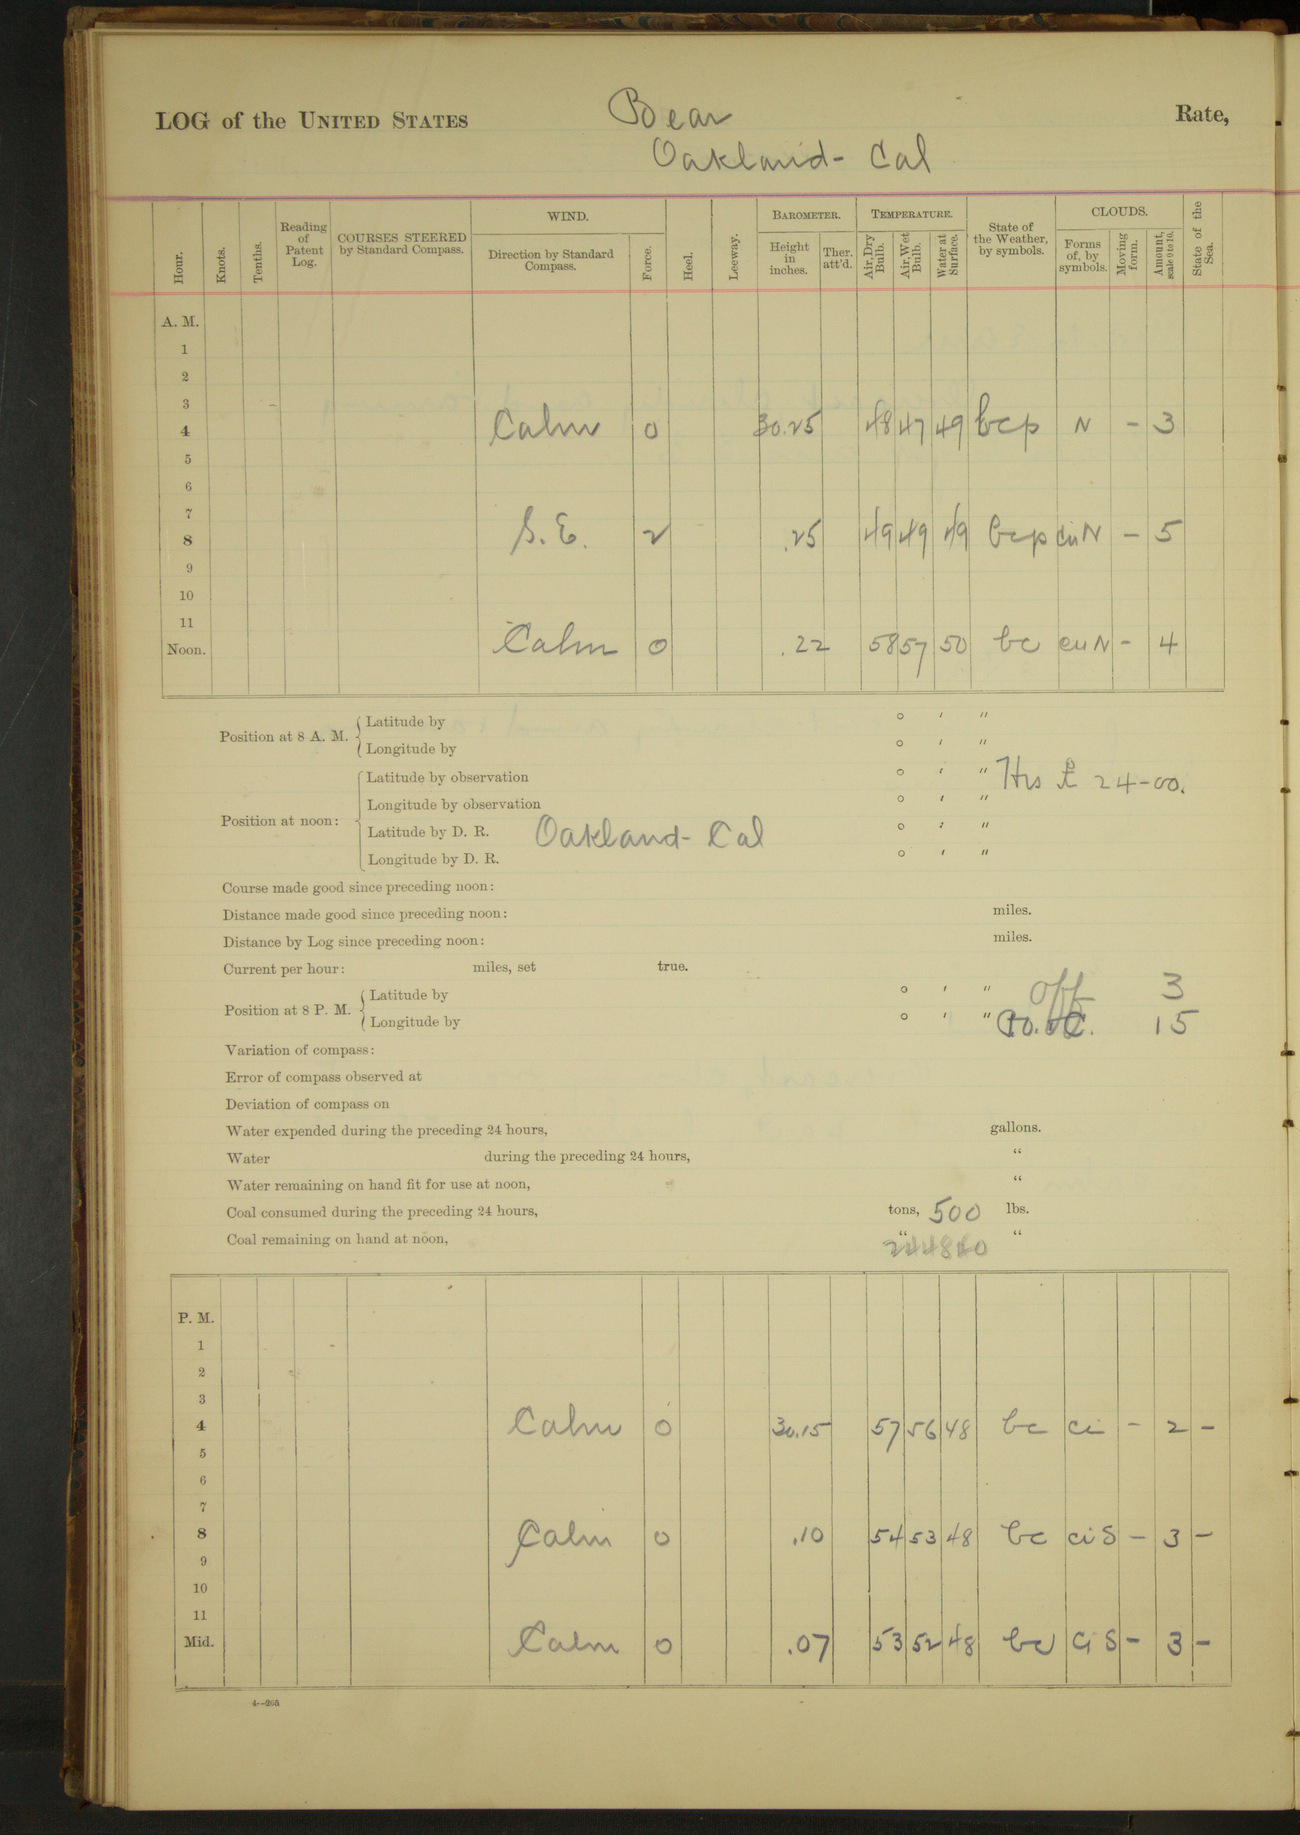 LOG of the UNITED STATES Bear Rate,
Oakland - Cal
Hour. Knots. Tenths. Reading of Patent Log. COURSES STEERED by Standard Compass. WIND. Direction by Standard Compass. Force. Heel. Leeway. BAROMETER. Height in inches. Ther. att'd. TEMPERATURE. Air, Dry Bulb. Air, Wet Bulb. Water at Surface. State of the Weather, by symbols. CLOUDS. Forms of, by symbols. Moving form. Amount, scale 0 to 10. State of the Sea.
A. M.
1
2
3
4 Calm 0 30.25 48 47 49 bcp N - 3
5
6
7
8 S. E. 2 .25 49 49 49 bcp cuN - 5
9
10
11
Noon. Calm 0 .22 58 57 50 bc cuN - 4
Position at 8 A. M. { Latitude by ° ' "
Longitude by ° ' "
Position at noon: { Latitude by observation ° ' " Hrs 24-00.
Longitude by observation ° ' "
Latitude by D. R. Oakland - Cal ° ' "
Longitude by D. R. ° ' "
Course made good since preceding noon:
Distance made good since preceding noon: miles.
Distance by Log since preceding noon: miles.
Current per hour: miles, set true.
Position at 8 P. M. { Latitude by ° ' " Off 3
Longitude by ° ' " 15
Variation of compass:
Error of compass observed at
Deviation of compass on
Water expended during the preceding 24 hours, gallons.
Water during the preceding 24 hours, "
Water remaining on hand fit for use at noon, "
Coal consumed during the preceding 24 hours, tons, 500 lbs.
Coal remaining on hand at noon, " "
P. M.
1
2
3
4 Calm 0 30.15 57 56 48 bc ci - 2 -
5
6
7
8 Calm 0 .10 54 53 48 bc ciS - 3 -
9
10
11
Mid. Calm 0 .07 53 52 48 bc ciS - 3 -
4--265